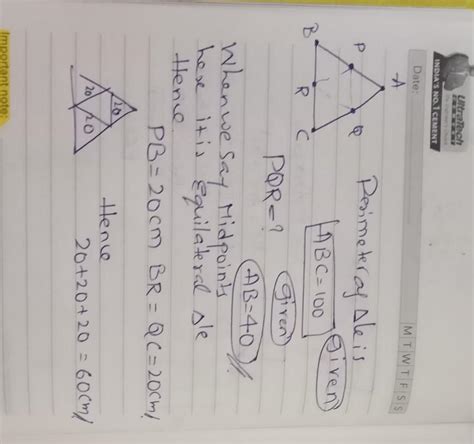 UltraTech
CEMENT
INDIA'S NO.1 CEMENT
Date:
M T W T F S S
A
P
Q
B
R
C
Perimeter of Δle is
ABC = 100
Given
PQR = ?
given
AB = 40
When we say Midpoints
here it is equilateral Δle
Hence
PB = 20cm BR = QC = 20cm/
20
20
20
Hence
20+20+20 = 60cm/
Important note: